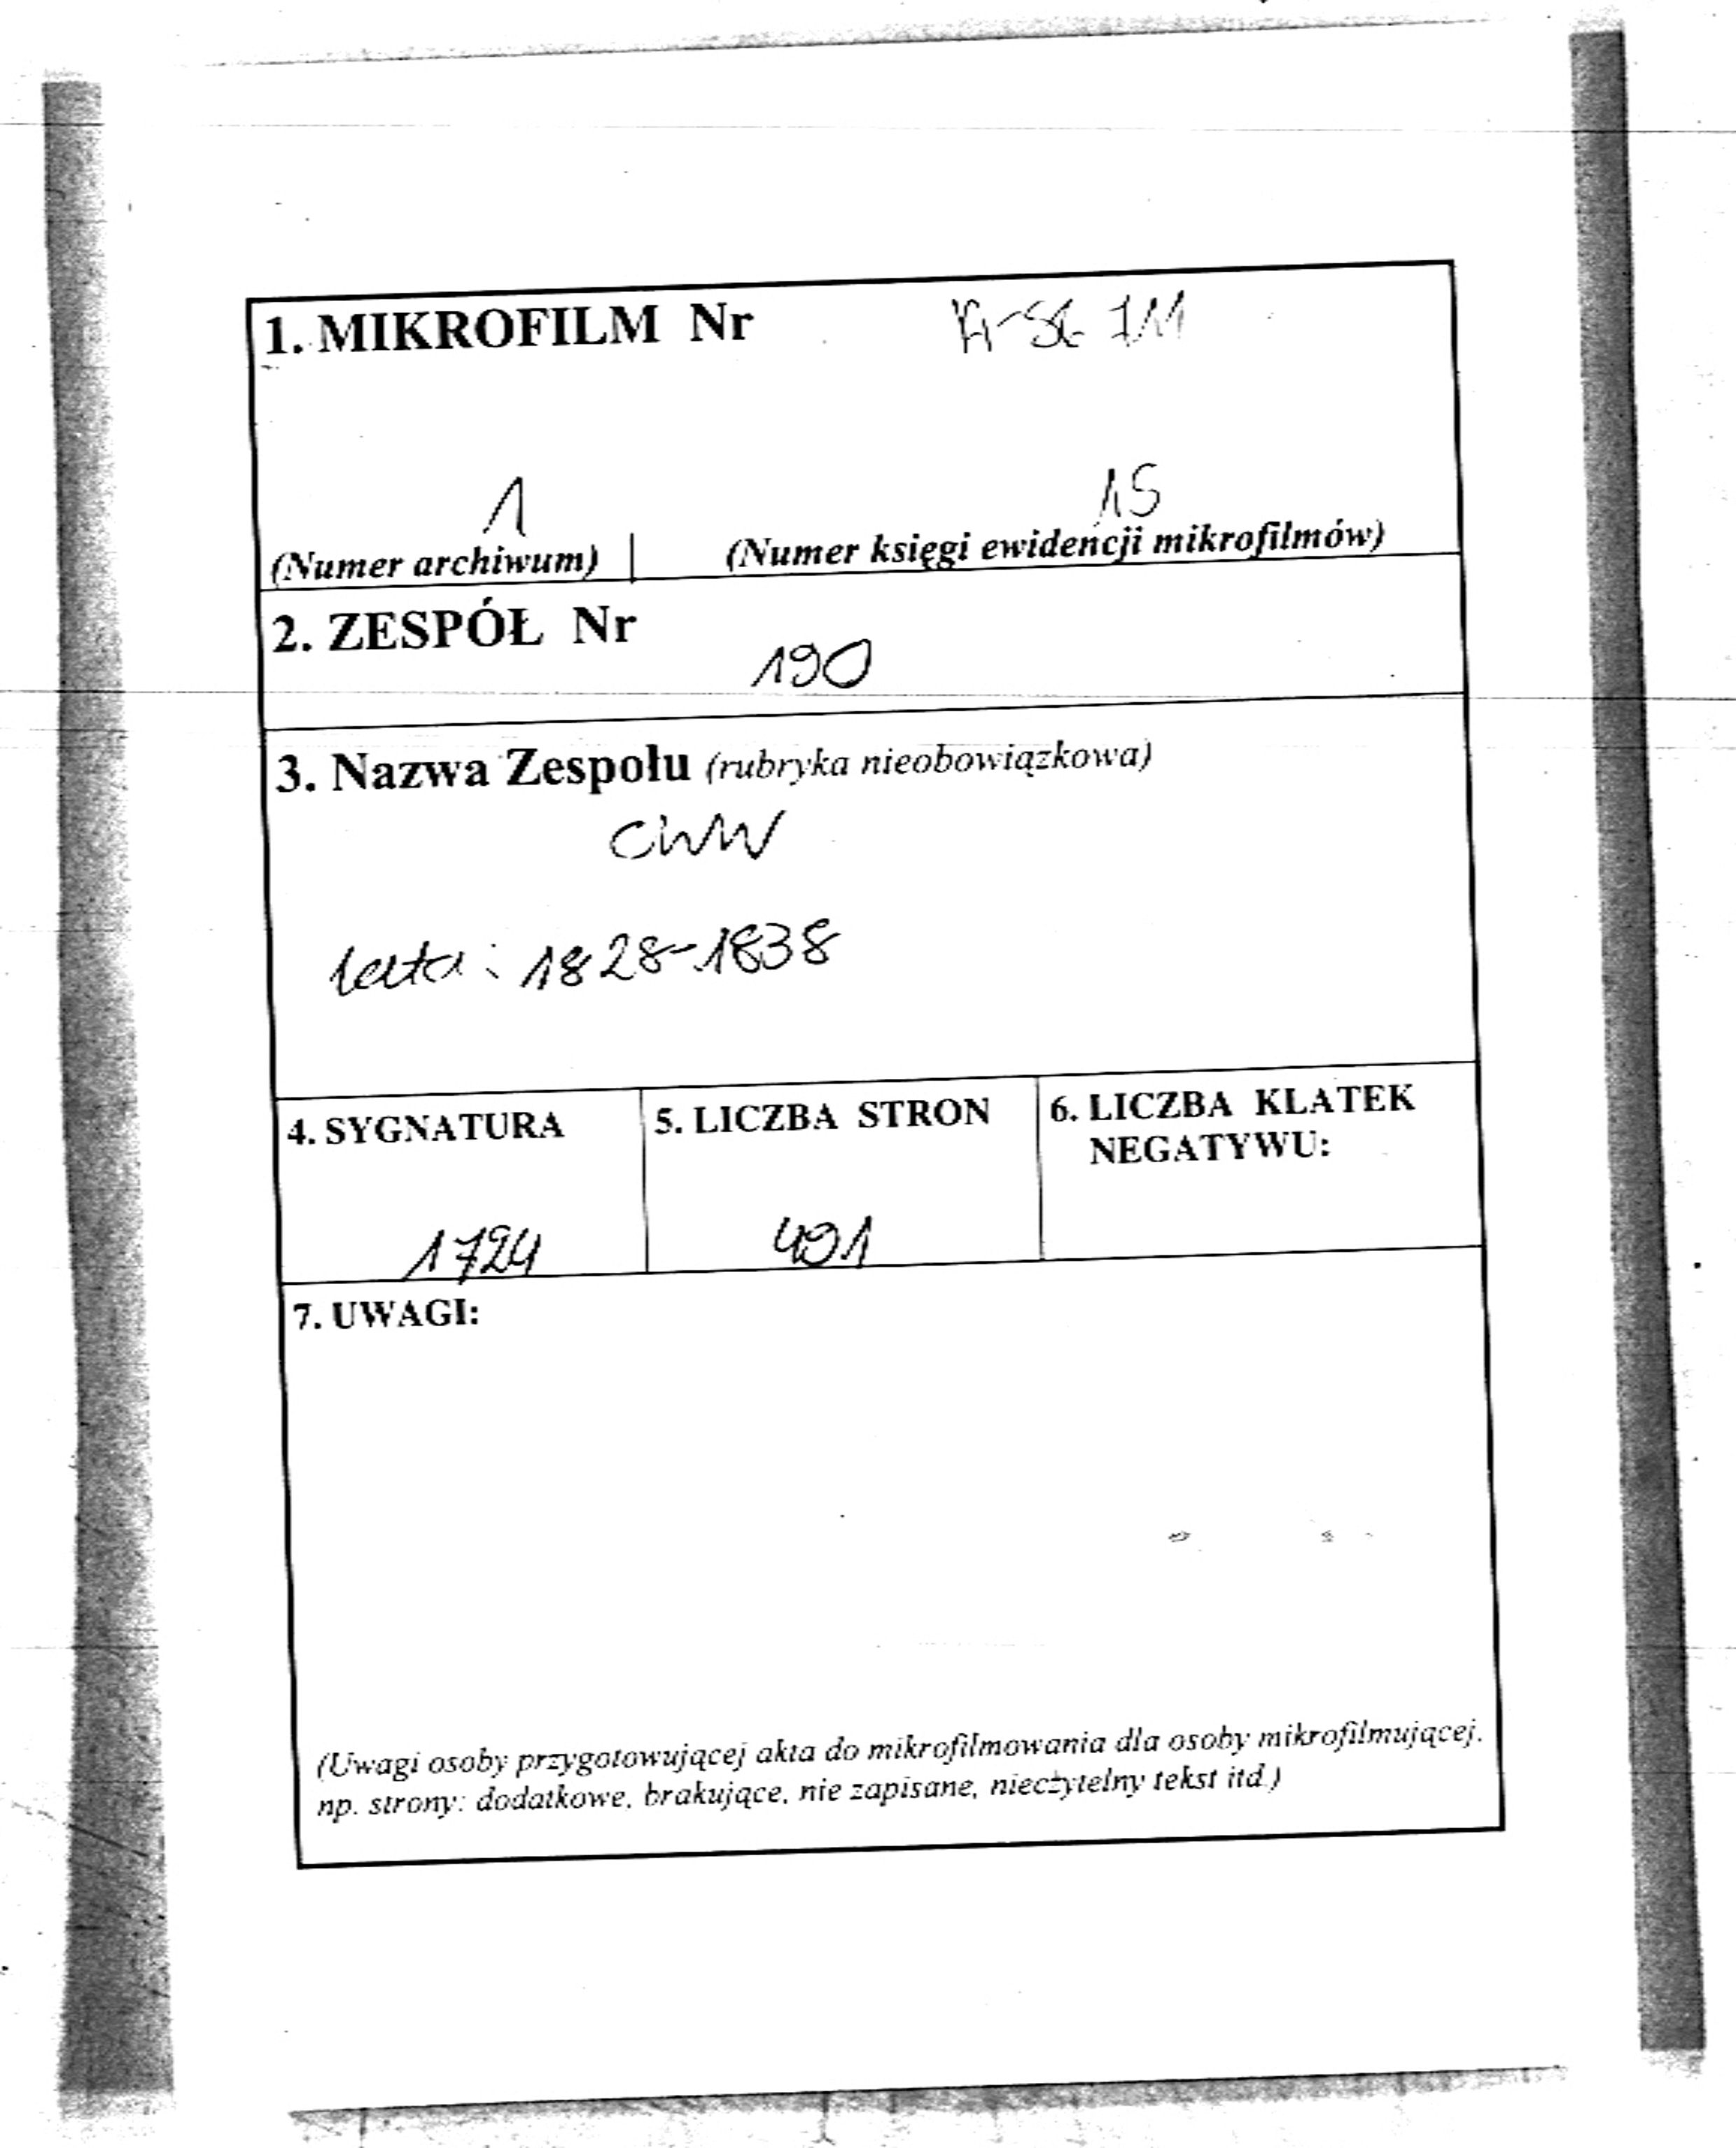 1. MIKROFILM Nr 711
1 15
(Numer archiwum) | (Numer księgi ewidencji mikrofilmów)
2. ZESPÓŁ Nr
190
3. Nazwa Zespołu (rubryka nieobowiązkowa)
CWW
lata: 1828-1838
4. SYGNATURA
1724
5. LICZBA STRON
491
6. LICZBA KLATEK
NEGATYWU:
7. UWAGI:
(Uwagi osoby przygotowującej akta do mikrofilmowania dla osoby mikrofilmującej,
np. strony: dodatkowe, brakujące, nie zapisane, nieczytelny tekst itd.)